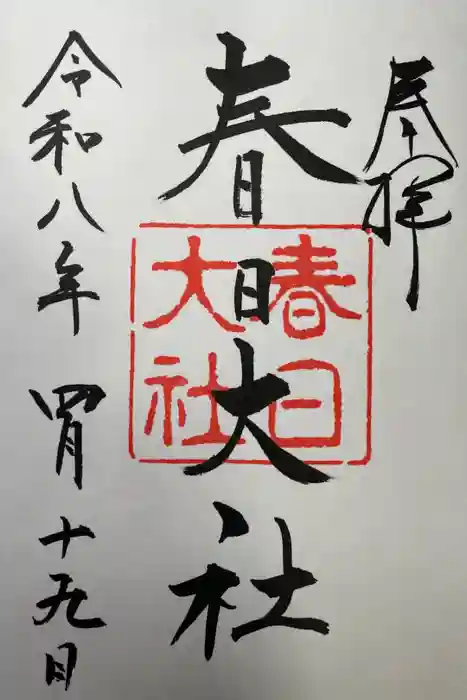 奉拝
春日大社
春日
大社
令和八年四月十九日